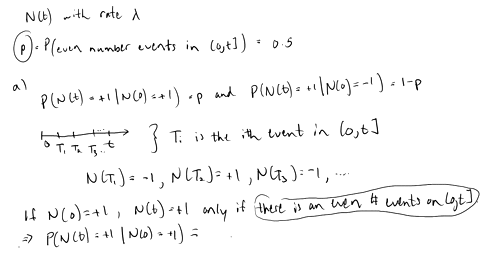 N(t) with rate λ
p = P(even number events in (0,t]) = 0.5
a)
P(N(t) = +1 | N(0) = +1) = p and P(N(t) = +1 | N(0) = -1) = 1-p
0 T₁ T₂ T₃ ... t } Tᵢ is the ith event in (0,t]
N(T₁) = -1, N(T₂) = +1, N(T₃) = -1, ...
If N(0) = +1, N(t) = +1 only if there is an even # events on (0,t]
⇒ P(N(t) = +1 | N(0) = +1) =